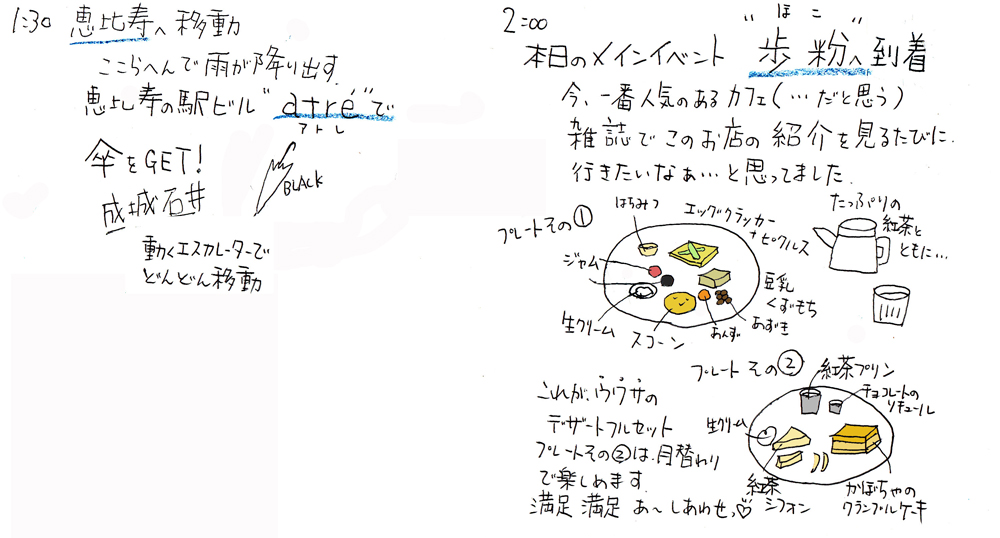 1:30 恵比寿へ移動
ここらへんで雨が降り出す
恵比寿の駅ビル"atré"で
アトレ
傘をGET!
BLACK
成城石井
動くエスカレーターで
どんどん移動
2:00
"ほこ"
本日のメインイベント 歩粉へ到着
今、一番人気のあるカフェ(…だと思う)
雑誌でこのお店の紹介を見るたびに
行きたいなぁ…と思ってました
プレートその①
はちみつ
エッグクラッカー
+ピクルス
ジャム
豆乳
くずもち
生クリーム
スコーン
あんず
あずき
たっぷりの
紅茶と
ともに…
プレートその②
紅茶プリン
チョコレートの
リキュール
生クリーム
紅茶
シフォン
かぼちゃの
クランブルケーキ
これが、ウワサの
デザートフルセット
プレートその②は、月替わり
で楽しめます
満足 満足 あ~しあわせっ♡